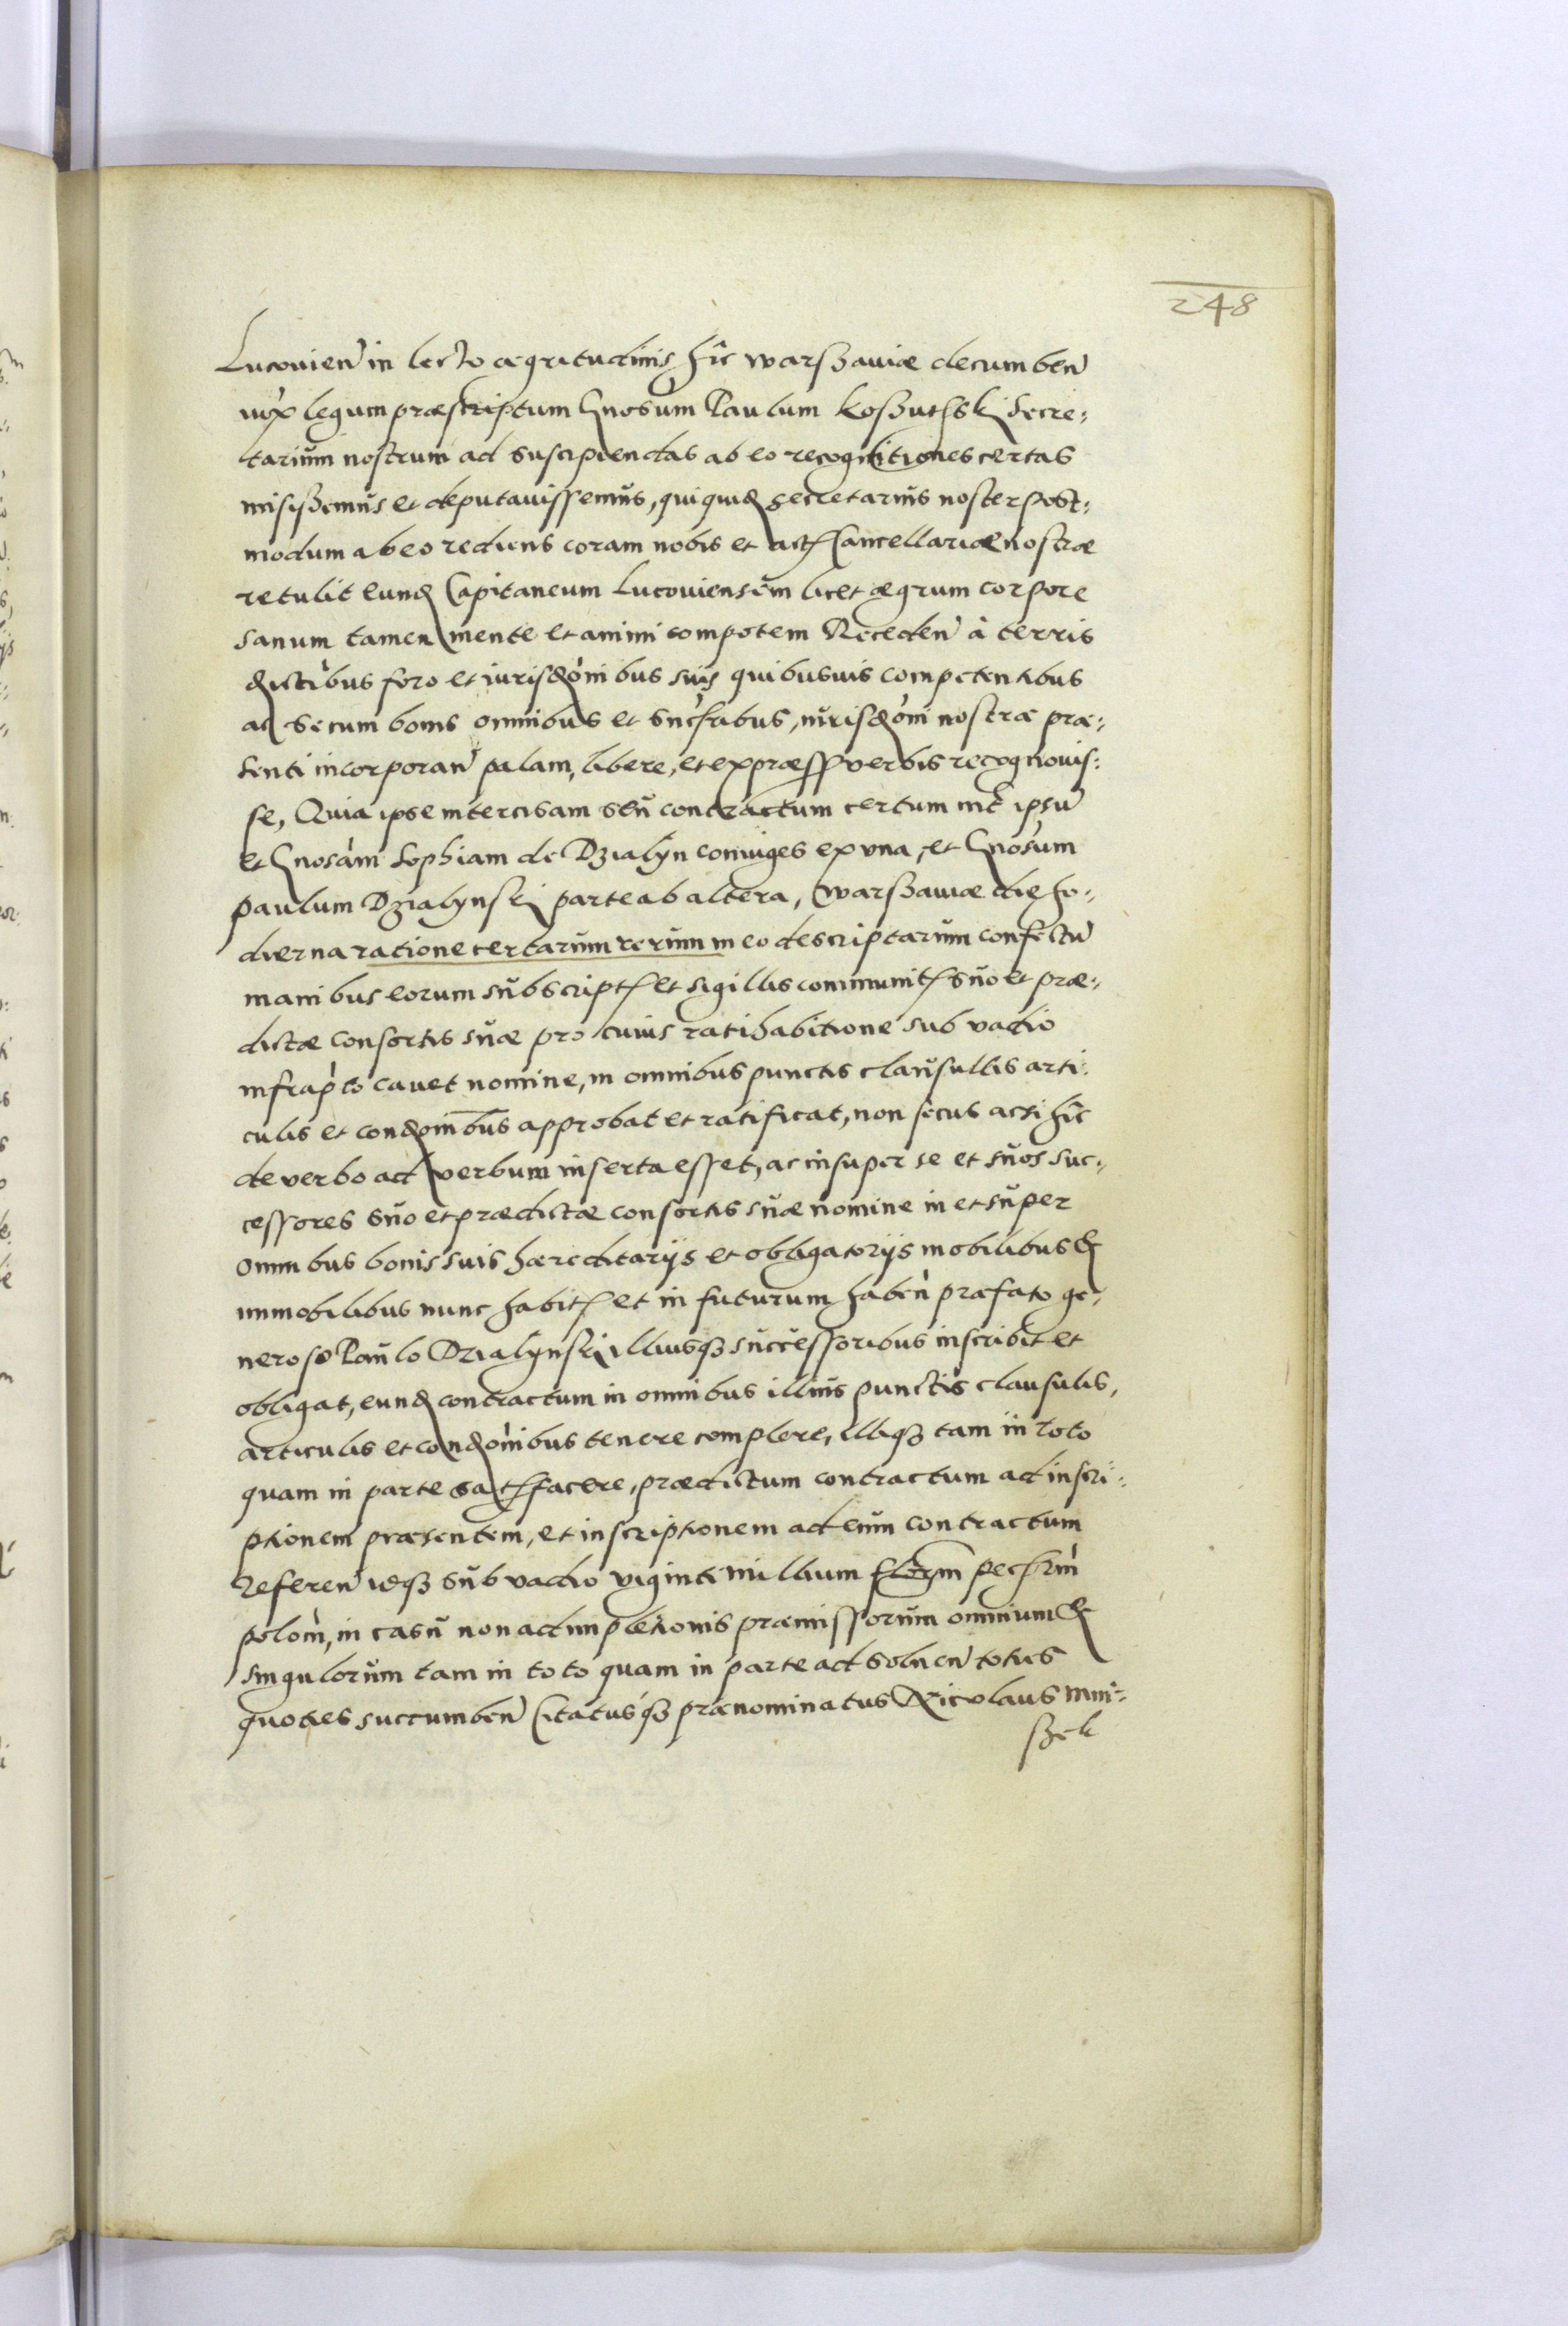 248
Lucovien in lecto ægritudinis hîc warßaviæ decumben
iux legum præscriptum Gnosum Paulum Koßuthski Secre:
tarium nostrum ad suscipiendas ab eo recognitiones certas
misißemus et deputavissemus, qui quid secretarius noster post:
modum ab eo rediens coram nobis et act Cancellariæ nostræ
retulit eund Capitaneum Lucoviensem licet ægrum corpore
sanum tamen mente et animi compotem Receden à terris
districtibus foro et iurisdonibus suis quibusvis competentibus
ac secum bonis omnibus et succribus, iurisdoni nostræ præ:
senti incorporan palam, libere, et expræss verbis recognovis:
se, Quia ipse intercisam seu contractum certum int ipsu
et Gnosam Sophiam de Dzialyn coniuges ex una, et Gnosum
paulum Dzialynski parte ab altera, warßaviæ die ho:
dierna ratione certarum rerum in eo descriptarum confectu
manibus eorum subscript et sigillis communit suo et præ:
dictæ consortis suæ pro cuius ratihabitione sub vadio
infrapto cavet nomine, in omnibus punctis clausullis arti:
culis et condonibus approbat et ratificat, non secus ac si hîc
de verbo ad verbum inserta esset, ac insuper se et suos suc:
cessores suo et prædictæ consortis suæ nomine in et super
omnibus bonis suis hæreditarijs et obligatorijs mobilibus &
immobilibus nunc habit et in futurum haben præfato ge:
neroso Paulo Dzialynski illiusq successoribus inscribit et
obligat, eund contractum in omnibus illius punctis clausulis,
articulis et condonibus tenere complere, illiq tam in toto
quam in parte satfacere, prædictum contractum ad inscri:
ptionem præsentem, et inscriptionem ad eum contractum
referen idq sub vadio viginti millium florm pec
polon, in casu non adimpletionis præmissorum omnium &
singulorum tam in toto quam in parte ad solven toties
quoties succumben Citatusq prænominatus Nicolaus Mni:
szek